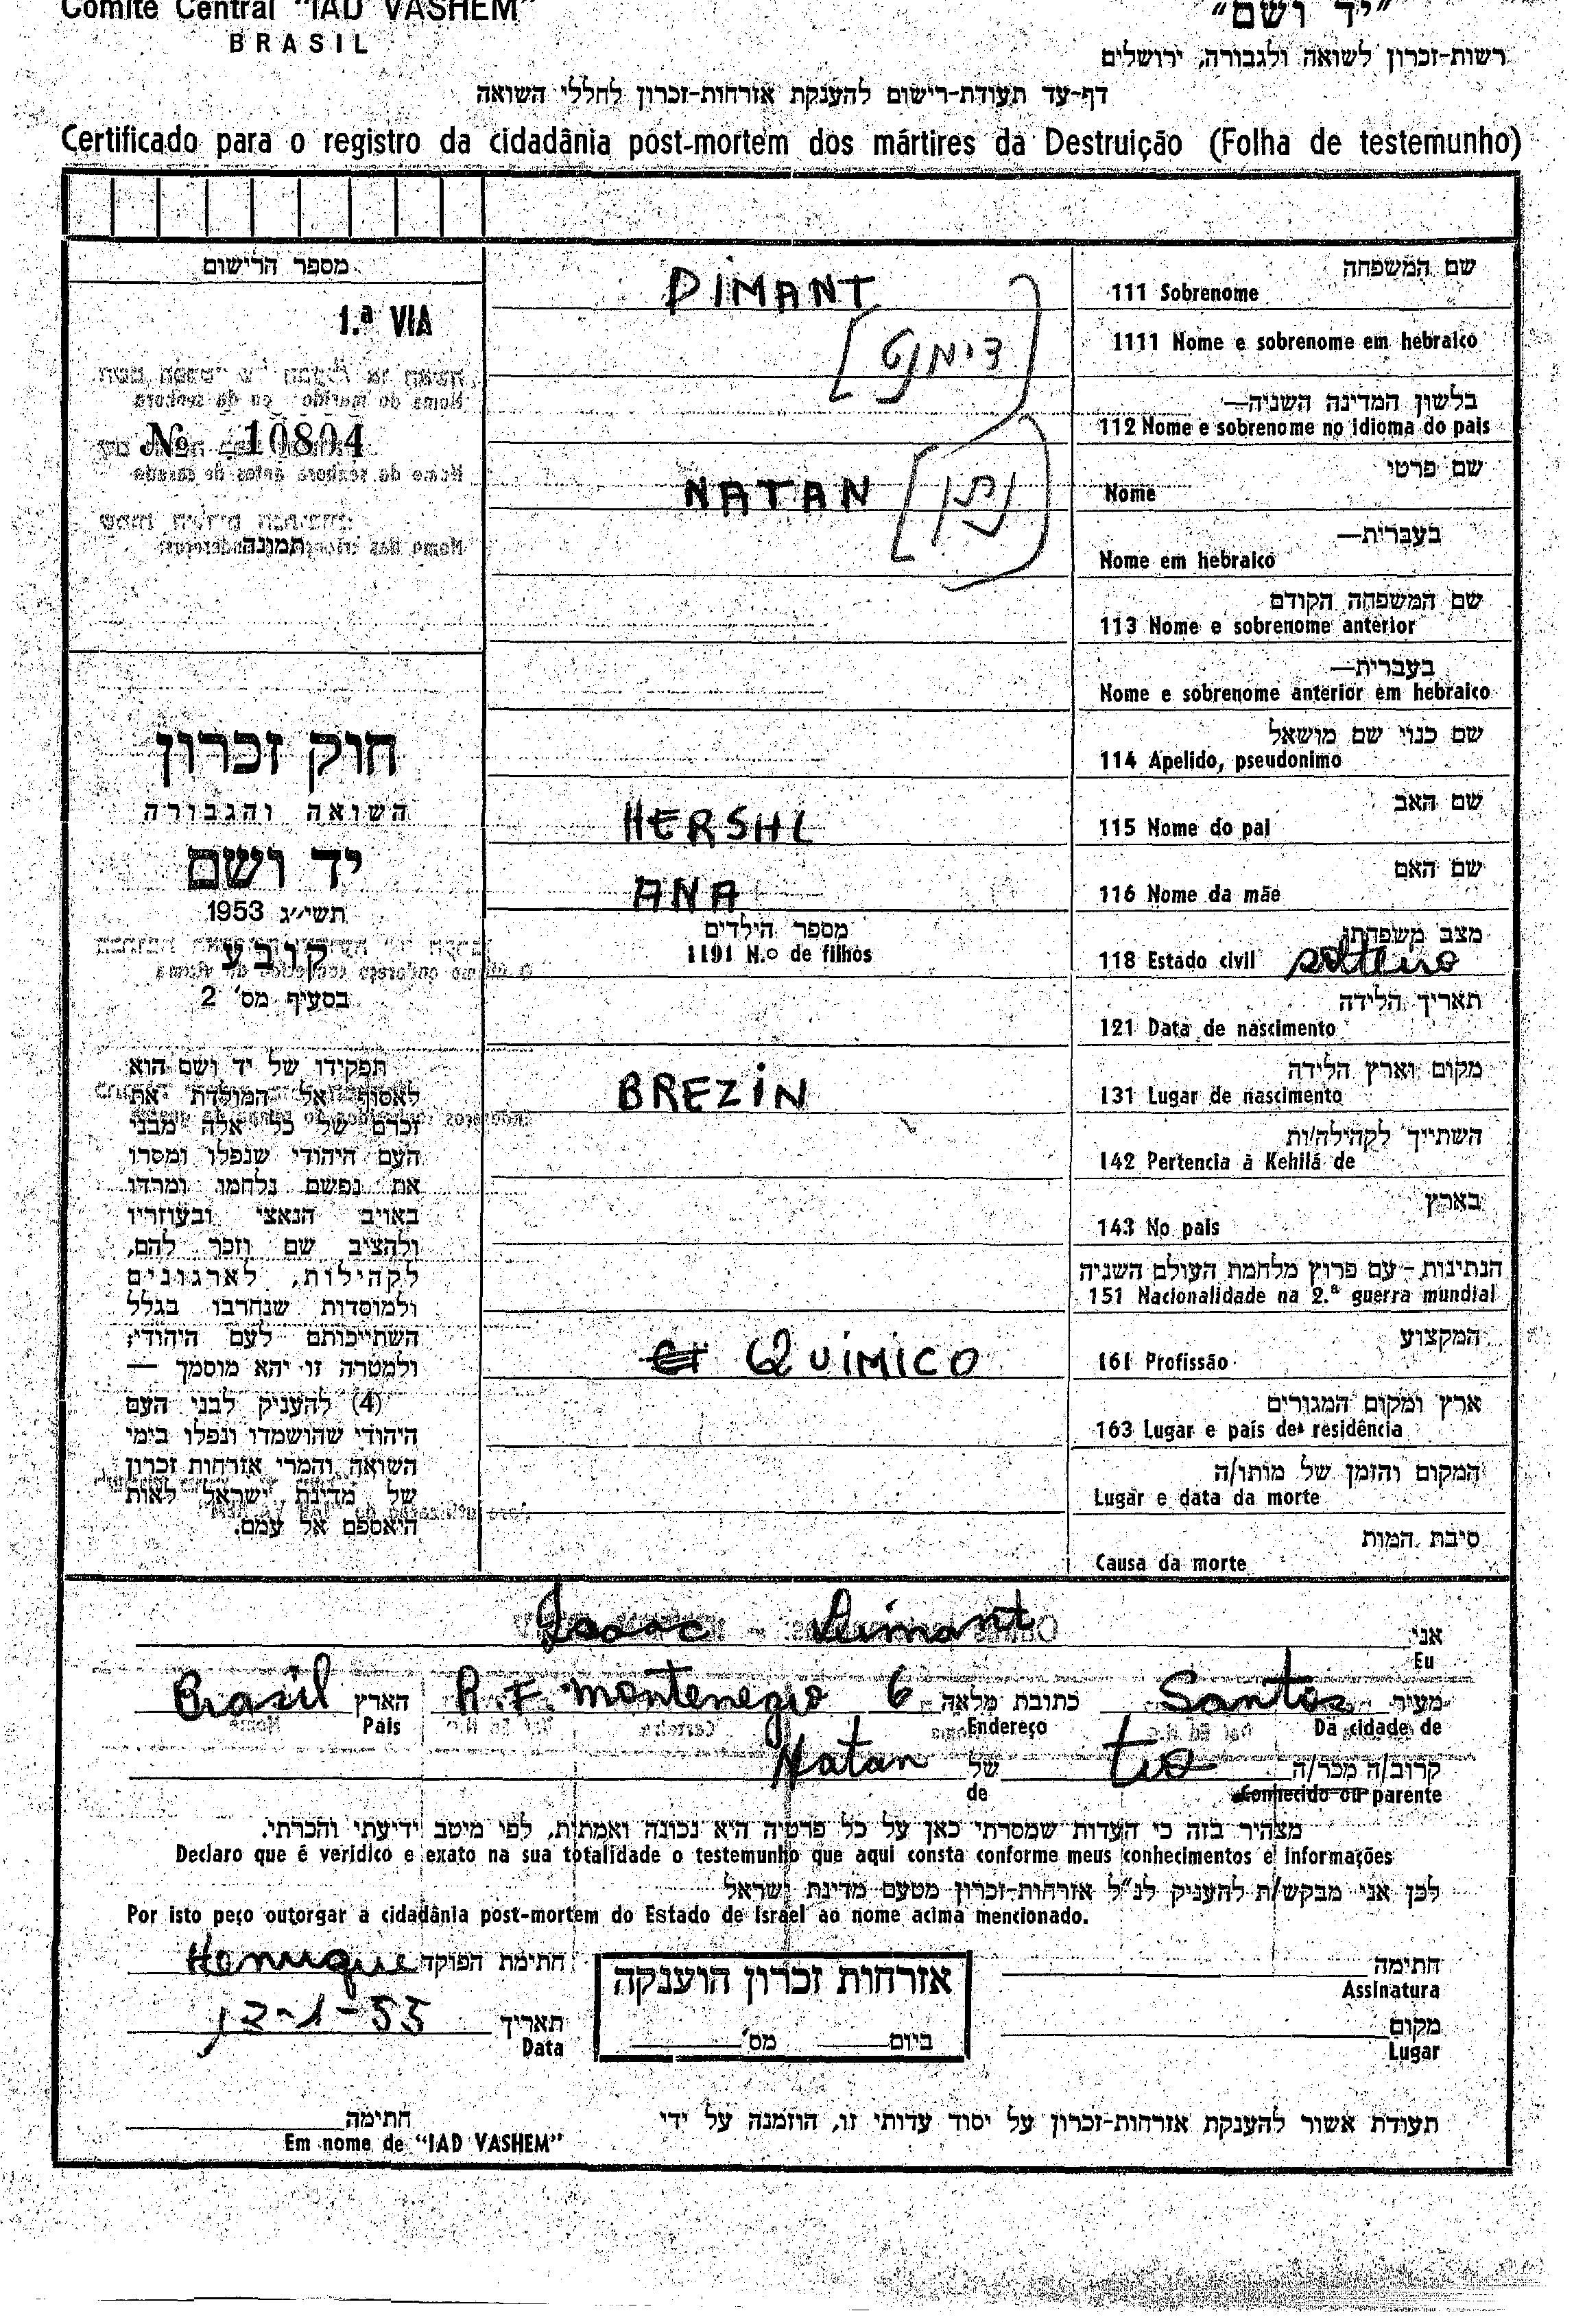 Comitê Central "IAD VASHEM"
BRASIL
"יד ושם"
רשות-זכרון לשואה ולגבורה, ירושלים
דף-עד תעודת-רישום להענקת אזרחות-זכרון לחללי השואה
Certificado para o registro da cidadânia post-mortem dos mártires da Destruição (Folha de testemunho)
מספר הרישום
1.ª VIA
Nº 10804
תמונה
חוק זכרון
השואה והגבורה
יד ושם
תשי״ג 1953
קובע
בסעיף מס' 2
תפקידו של יד ושם הוא
לאסוף אל המולדת את
זכרם של כל אלה מבני
העם היהודי שנפלו ומסרו
את נפשם נלחמו ומרדו
באויב הנאצי ובעוזריו
ולהציב שם וזכר להם,
לקהילות, לארגונים
ולמוסדות שנחרבו בגלל
השתייכותם לעם היהודי;
ולמטרה זו יהא מוסמך —
(4) להעניק לבני העם
היהודי שהושמדו ונפלו בימי
השואה והמרי אזרחות זכרון
של מדינת ישראל לאות
היאספם אל עמם.
שם המשפחה
111 Sobrenome DIMANT
1111 Nome e sobrenome em hebraico [דימנט]
בלשון המדינה השניה—
112 Nome e sobrenome no idioma do pais
שם פרטי
Nome NATAN [נתן]
בעברית—
Nome em hebraico
שם המשפחה הקודם
113 Nome e sobrenome anterior
בעברית—
Nome e sobrenome anterior em hebraico
שם כנוי שם מושאל
114 Apelido, pseudonimo
שם האב
115 Nome do pai HERSHL
שם האם
116 Nome da mãe ANA
מצב משפחתי
118 Estado civil solteiro
מספר הילדים
1191 N.º de filhos
תאריך הלידה
121 Data de nascimento
מקום וארץ הלידה
131 Lugar de nascimento BREZIN
השתייך לקהילה/ות
142 Pertencia à Kehilá de
בארץ
143 No pais
הנתינות - עם פרוץ מלחמת העולם השניה
151 Nacionalidade na 2.ª guerra mundial
המקצוע
161 Profissão QUIMICO
ארץ ומקום המגורים
163 Lugar e pais de residência
המקום והזמן של מותו/ה
Lugar e data da morte
סיבת המות
Causa da morte
אני
Eu Isaac Dimant
מעיר Santos כתובת מלאה R. F. Montenegro 6 הארץ Brasil
Da cidade de Endereço Pais
קרוב/ה מכר/ה tio של Natan
Conhecido ou parente de
מצהיר בזה כי העדות שמסרתי כאן על כל פרטיה היא נכונה ואמתית, לפי מיטב ידיעתי והכרתי.
Declaro que é veridico e exato na sua totalidade o testemunho que aqui consta conforme meus conhecimentos e informações
לכן אני מבקש/ת להעניק לנ"ל אזרחות-זכרון מטעם מדינת ישראל
Por isto peço outorgar a cidadânia post-mortem do Estado de Israel ao nome acima mencionado.
חתימה
Assinatura
חתימת הפוקד Henrique
מקום
Lugar
תאריך
Data 12-1-55
אזרחות זכרון הוענקה
ביום מס'
תעודת אשור להענקת אזרחות-זכרון על יסוד עדותי זו, הוזמנה על ידי
חתימה
Em nome de "IAD VASHEM"